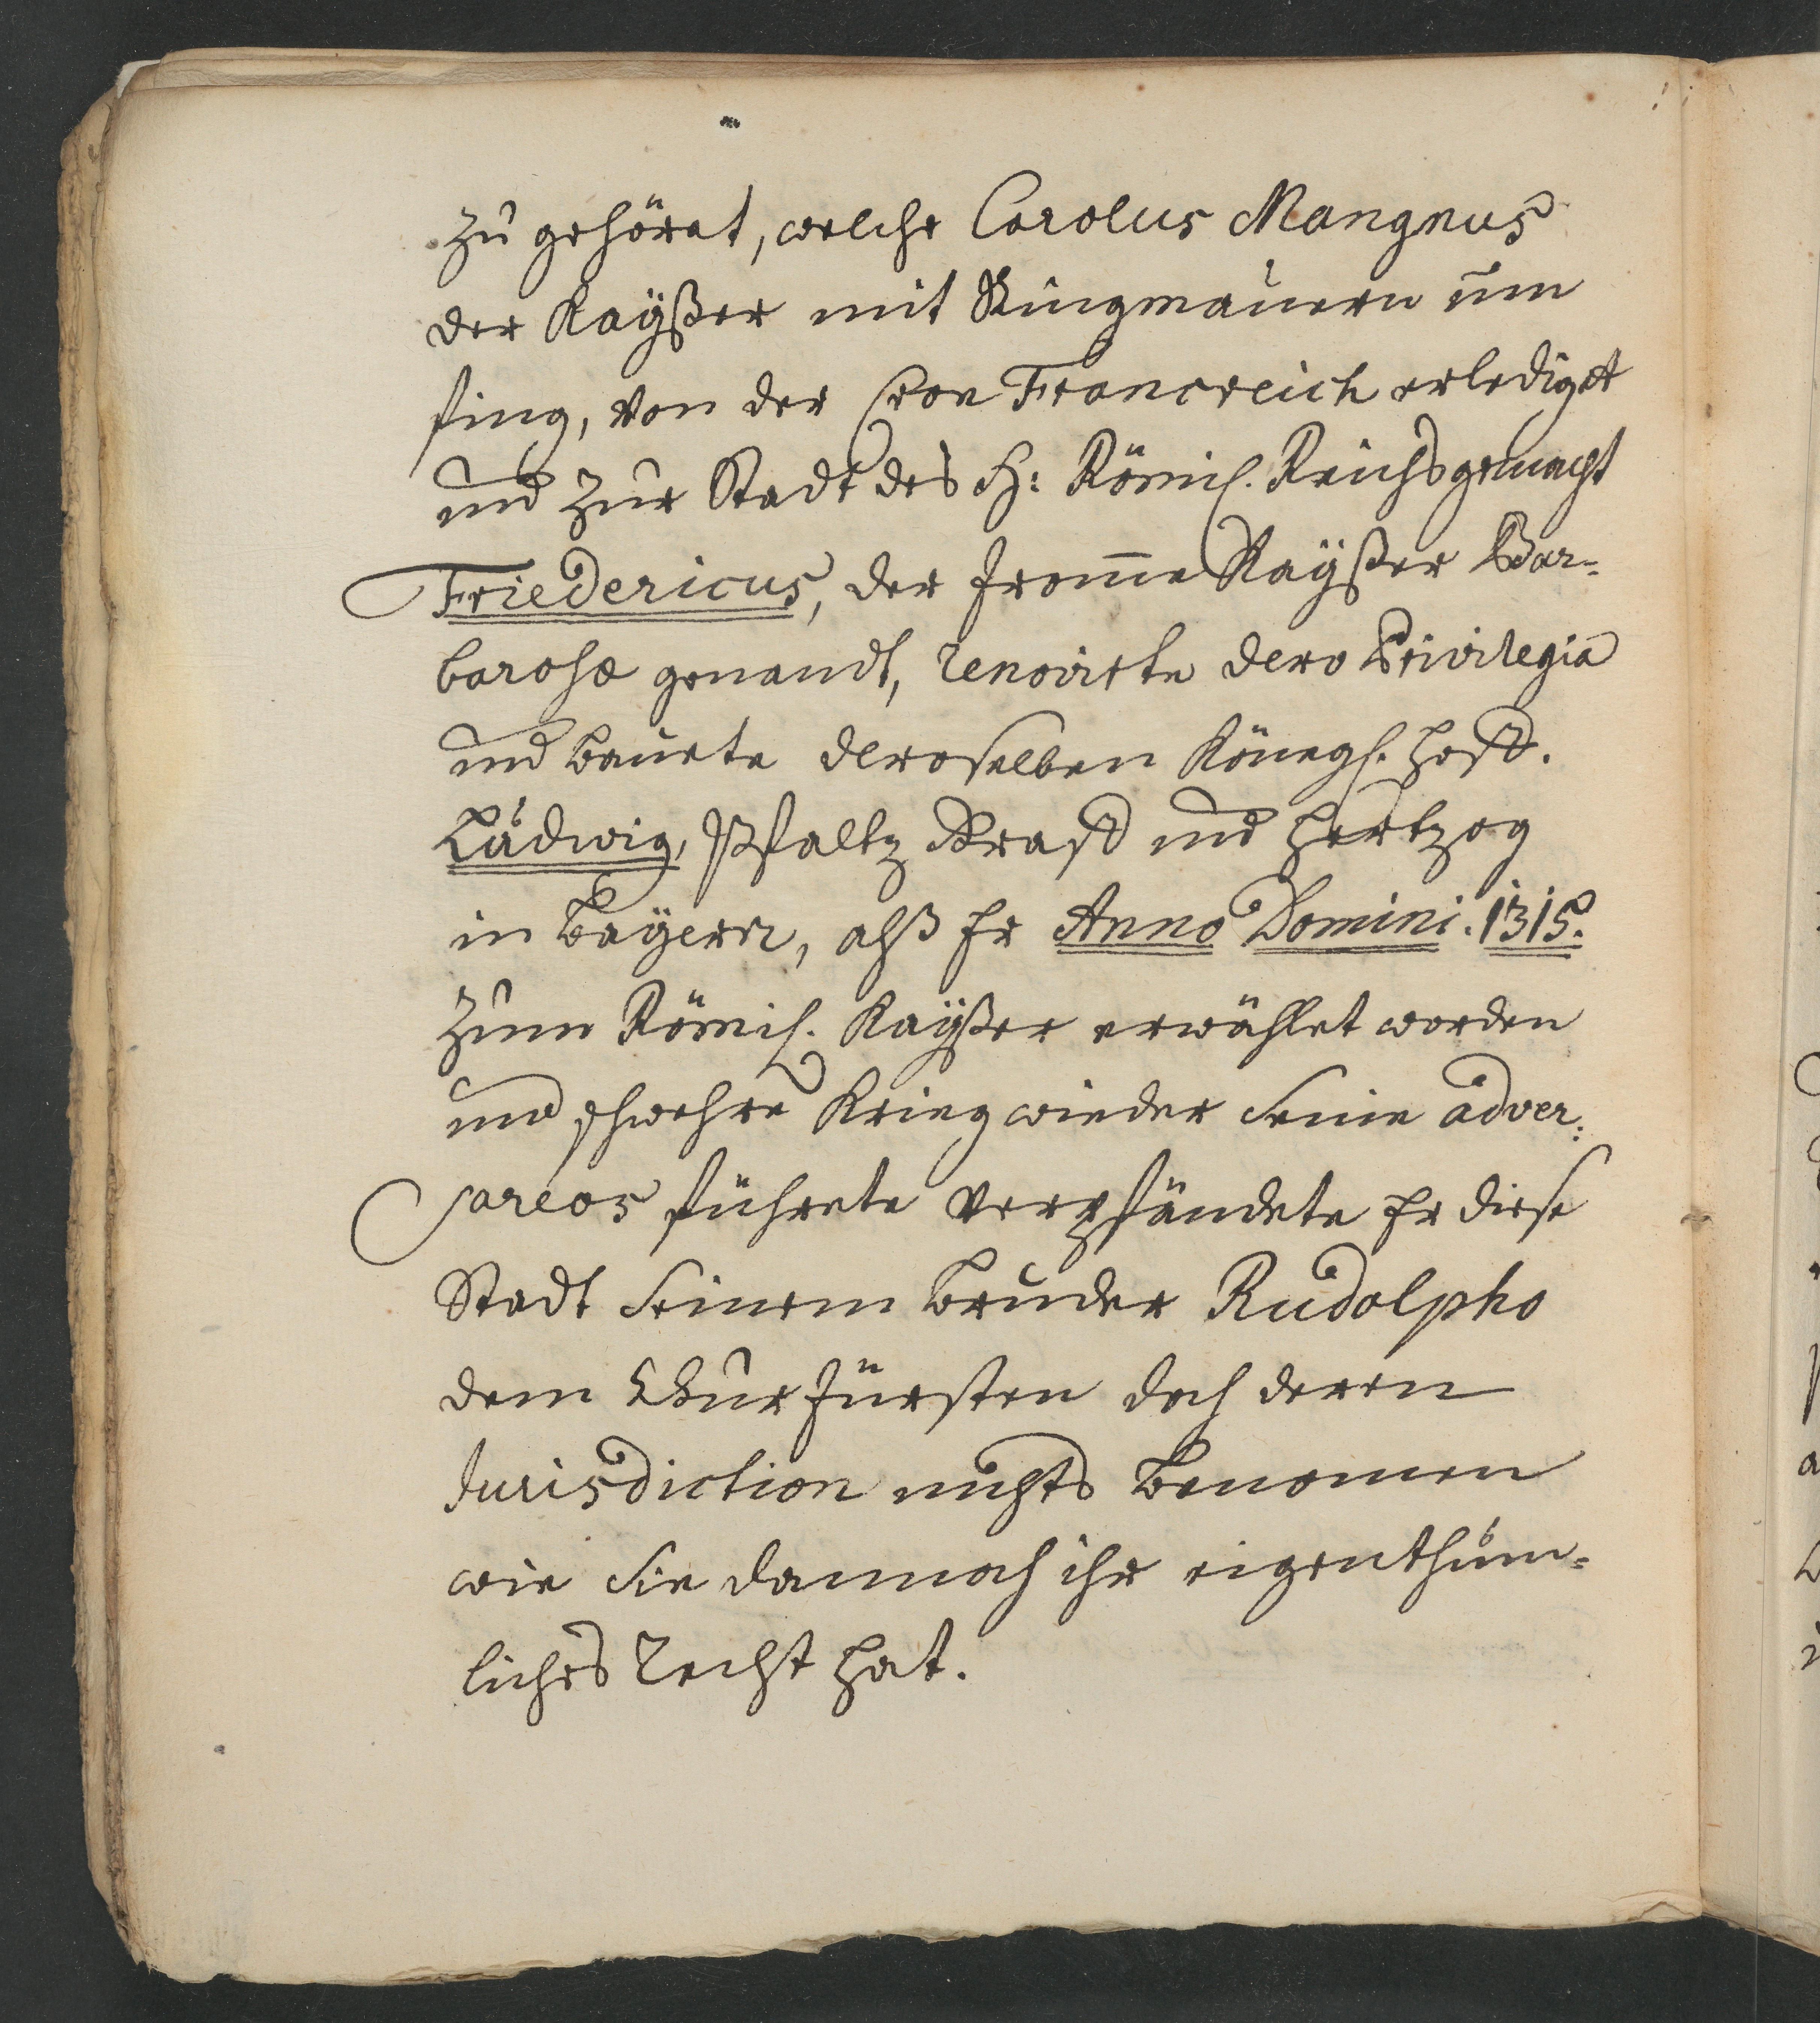 zu gehöret, welche Carolus Mangnus
der Kaÿßer mit Ringmauern um
fing, von der Cron Francreich erlediget
und zur Stadt des H: Römis. Reichs gemacht
Friedericus, der from̅e Kaÿßer Bar-
barossa genandt, renovirte dero Privilegia
und bauete deroselben Königs. Hoff.
Ludwig, Pfaltz Graff und Hertzog
in Baÿern, alß Er Anno Domini. 1315.
zum Römis. Kaÿßer erwählet worden
und schwehre Krieg wieder seine adver:
sareos führete verpfändete Er diese
Stadt seinem Bruder Rudolpho
dem Churfürsten doch deren
Jurisdiction nichts benomen
wie sie dannoch ihr eigenthüm-
liches recht hat.